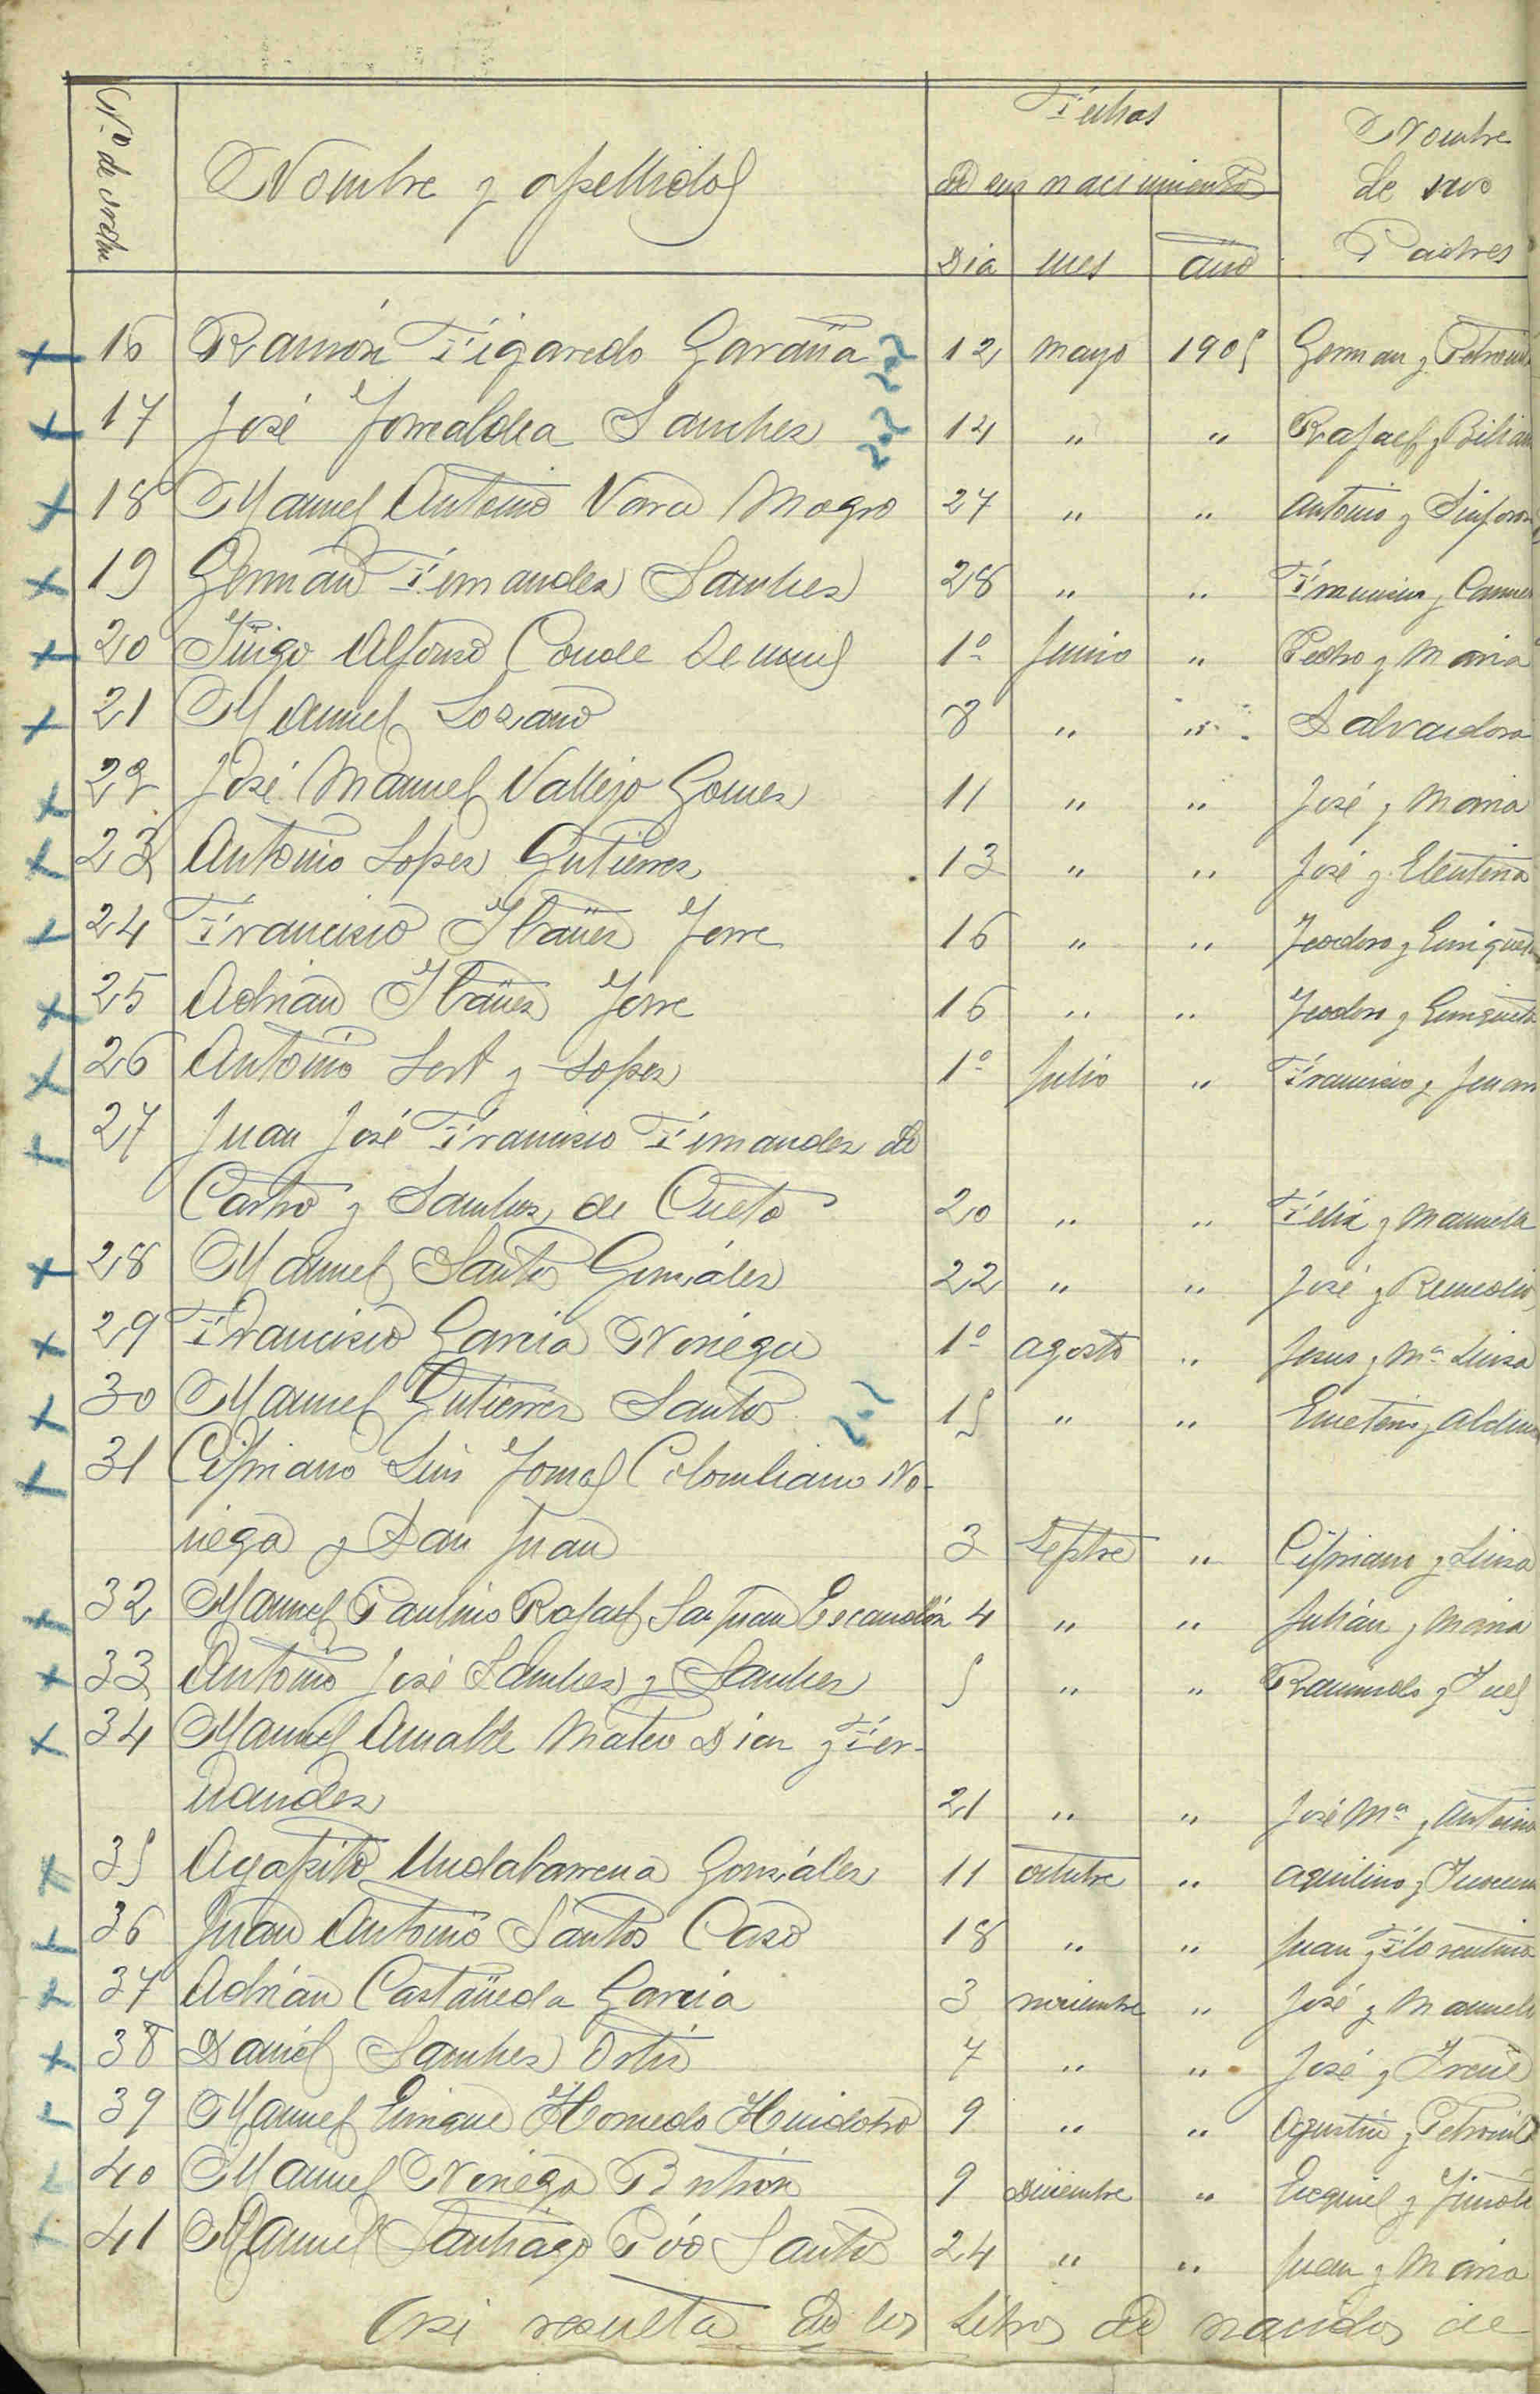 Nº de orden
Nombre y apellidos
Fechas
de su nacimiento
Dia mes año
Nombre
de sus
Padres
16 Ramón Figaredo Garaña 12 mayo 1905 German y
17 José Torrealdea Sanchez 14 " " Rafael y
18 Manuel Antonio Vara Magro 27 " " Antonio y
19 German Fernandez Sanchez 28 " " Francisco y
20 Iñigo Alfonso Conde 1º Junio " Pedro y Maria
21 Manuel Lozano 8 " " Salvadora
22 José Manuel Vallejo Gomez 11 " " José y Maria
23 Antonio Lopez Gutierrez 13 " " José y
24 Francisco Ibañez Torre 16 " " Teodoro y
25 Adrian Ibañez Torre 16 " " Teodoro y Enriqueta
26 Antonio Sert y Lopez 1º Julio " Francisco y
27 Juan José Francisco Fernandez de
Castro y Sanchez de Cueto 20 " " Félix y Manuela
28 Manuel Santos González 22 " " José y Remedios
29 Francisco Garcia Noriega 1º agosto " Jesus y Mª Luisa
30 Manuel Gutierrez Santos 15 " " Emeterio y
31 Cipriano Luis Tomas Colombiano No-
riega y San Juan 3 Septbre " Cipriano y Luisa
32 Manuel Paulino Rafael San Juan Escandón 4 " " Julián y Maria
33 Antonio José Sanchez y Sanchez 5 " " Raimundo y Inés
34 Manuel Amable Mateo Diaz y Fer-
nandez 21 " " José Mª y
35 Agapito Undabarrena González 11 octubre " Aquilino y
36 Juan Antonio Santos Caso 18 " " Juan y Florentina
37 Adrián Castañeda Garcia 3 noviembre " José y Manuela
38 Daniel Sanchez Ortiz 7 " " José y Irene
39 Manuel Enrique Homedo Huidobro 9 " " Agustin y
40 Manuel Noriega Buitrón 9 Diciembre " Ezequiel y
41 Manuel Santiago Póo Santos 24 " " Juan y Maria
Asi resulta de los Libros de nacidos de